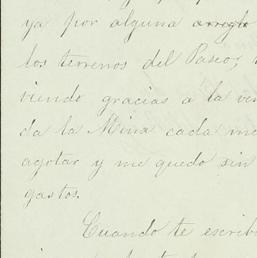 ya por alguna arreglo
los terrenos del Paseo,
viendo gracias a la ven
da la Mina cada
agotar y me quedo sin
gastos.
Cuando te escrib